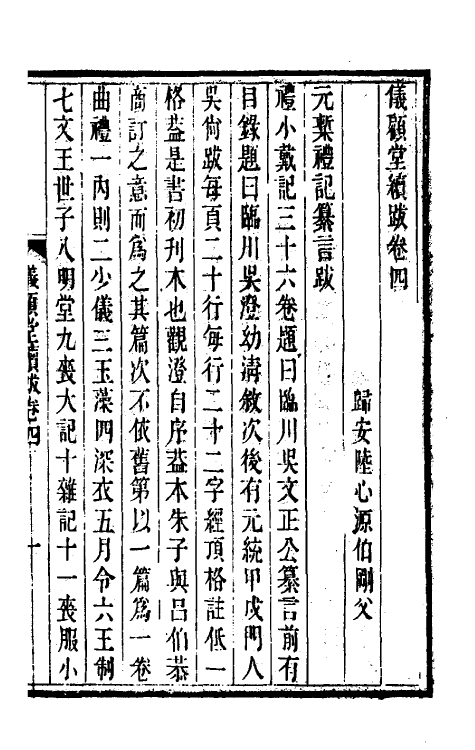 儀顧堂續跋卷四
歸安陸心源伯剛父
元槧禮記纂言跋
禮小戴記三十六卷題曰臨川吳文正公纂言前有
目錄題曰臨川吳澄幼淸敘次後有元統甲戌門人
吳尙跋每頁二十行每行二十二字經頂格註低一
格葢是書初刊本也觀澄自序葢本朱子與呂伯恭
商訂之意而爲之其篇次不依舊第以一篇爲一卷
曲禮一內則二少儀三玉藻四深衣五月令六王制
七文王世子八明堂九喪大記十雜記十一喪服小
儀顧堂續跋卷四
一